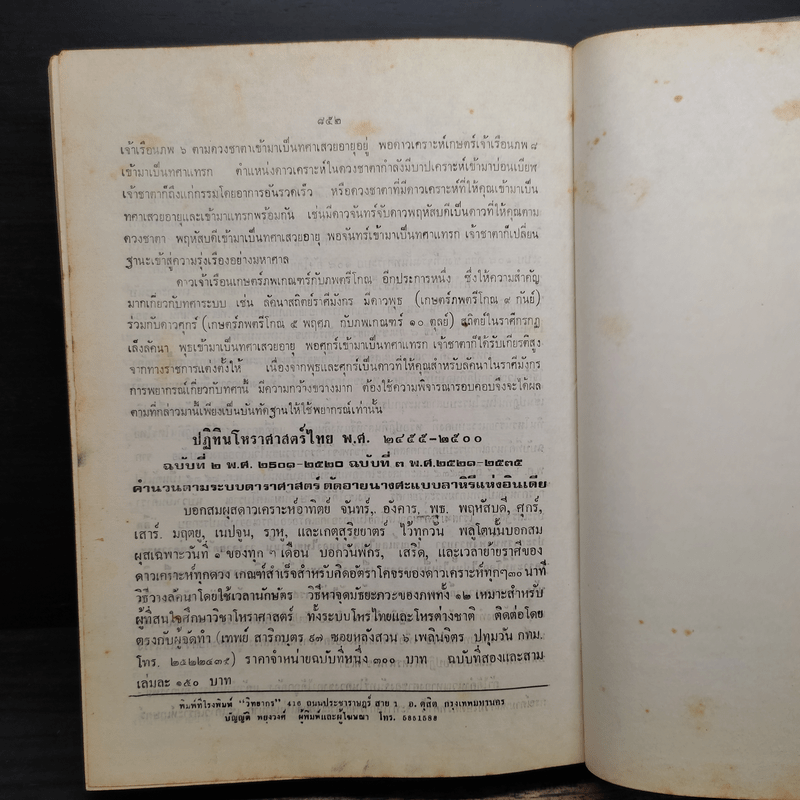 ๘๕๒
เจ้าเรือนภพ ๖ ตามดวงชาตาเข้ามาเป็นทศาเสวยอายุอยู่ พอดาวเคราะห์เกษตร์เจ้าเรือนภพ ๘
เข้ามาเป็นทศาแทรก ตำแหน่งดาวเคราะห์ในดวงชาตากำลังมีบาปเคราะห์เข้ามาบ่อนเบียฬ
เจ้าชาตาก็ถึงแก่กรรมโดยอาการอันรวดเร็ว หรือดวงชาตาที่มีดาวเคราะห์ที่ให้คุณเข้ามาเป็น
ทศาเสวยอายุและเข้ามาแทรกพร้อมกัน เช่นมีดาวจันทร์จับดาวพฤหัสบดีเป็นดาวที่ให้คุณตาม
ดวงชาตา พฤหัสบดีเข้ามาเป็นทศาเสวยอายุ พอจันทร์เข้ามาเป็นทศาแทรก เจ้าชาตาก็เปลี่ยน
ฐานะเข้าสู่ความรุ่งเรืองอย่างมหาศาล
ดาวเจ้าเรือนเกษตร์ภพเกณฑร์กับภพตรีโกณ อีกประการหนึ่ง ซึ่งให้ความสำคัญ
มากเกี่ยวกับทศาระบบ เช่น ลัคนาสถิตย์ราศีมังกร มีดาวพุธ (เกษตร์ภพตรีโกณ ๙ กันย์)
ร่วมกับดาวศุกร์ (เกษตร์ภพตรีโกณ ๕ พฤศภ กับภพเกณฑร์ ๑๐ ตุลย์) สถิตย์ในราศีกรกฎ
เล็งลัคนา พุธเข้ามาเป็นทศาเสวยอายุ พอศุกร์เข้ามาเป็นทศาแทรก เจ้าชาตาก็ได้รับเกียรติสูง
จากทางราชการแต่งตั้งให้ เนื่องจากพุธและศุกร์เป็นดาวที่ให้คุณสำหรับลัคนาในราศีมังกร
การพยากรณ์เกี่ยวกับทศานี้ มีความกว้างขวางมาก ต้องใช้ความพิจารณารอบคอบจึงจะได้ผล
ตามที่กล่าวมานี้เพียงเป็นบันทัดฐานให้ใช้พยากรณ์เท่านั้น
ปฏิทินโหราศาสตร์ไทย พ.ศ. ๒๔๕๕-๒๕๐๐
ฉบับที่ ๒ พ.ศ. ๒๕๐๑-๒๕๒๐ ฉบับที่ ๓ พ.ศ.๒๕๒๑-๒๕๓๕
คำนวนตามระบบดาราศาสตร์ ตัดอายนางศะแบบลาหิรีแห่งอินเดีย
บอกสมผุสดาวเคราะห์อาทิตย์ จันทร์, อังคาร, พุธ, พฤหัสบดี, ศุกร์,
เสาร์. มฤตยู, เนปจูน, ราหู, และเกตุสุริยยาตร์ ไว้ทุกวัน พลูโตนั้นบอกสม
ผุสเฉพาะวันที่ ๑ ของทุก ๆ เดือน บอกวันพักร, เสริด, และเวลาย้ายราศีของ
ดาวเคราะห์ทุกดวง เกณฑ์สำเร็จสำหรับคิดอัตราโคจรของดาวเคราะห์ทุกๆ๓๐ นาที
วิธีวางลัคนาโดยใช้เวลานักษัตร วิธีหาจุดมัธยะภวะของภพทั้ง ๑๒ เหมาะสำหรับ
ผู้ที่สนใจศึกษาวิชาโหราศาสตร์ ทั้งระบบโหรไทยและโหรต่างชาติ ติดต่อโดย
ตรงกับผู้จัดทำ (เทพย์ สาริกบุตร ๙๗ ซอยหลังสวน ๖ เพลินจิตร ปทุมวัน กทม.
โทร. ๒๕๒๒๔๓๙) ราคาจำหน่ายฉบับที่หนึ่ง ๓๐๐ บาท ฉบับที่สองและสาม
เล่มละ ๑๕๐ บาท
พิมพ์ที่โรงพิมพ์ "วิทยากร" 416 ถนนประชาราษฎร์ สาย 1 อ. ดุสิต กรุงเทพมหานคร
บัญญัติ พยุงวงศ์ ผู้พิมพ์และผู้โฆษณา โทร. 5851588